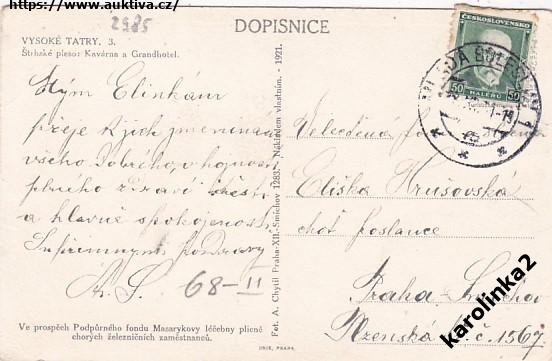 https://www.auktiva.cz/
2985
DOPISNICE
VYSOKÉ TATRY. 3.
Štrbské pleso: Kavárna a Grandhotel.
ČESKOSLOVENSKO
50 HALÉŘŮ 50
Mým Elinkám
přeje k jich jmeninám
všeho dobrého, v hojnosti
plného zdraví štěstí
a hlavně spokojenosti
S upřímnými pozdravy
A. S.
68-II
Ve prospěch Podpůrného fondu Masarykovy léčebny plicně
chorých železničních zaměstnanců.
Fot. A. Chytil Praha-XII.-Smíchov 1283. Nákladem vlastním. - 1921.
UNIE, PRAHA.
Velevážená
Eliška Hrušovská
choť poslance
Praha Smíchov
Plzenská č. 1567.
karolinka2